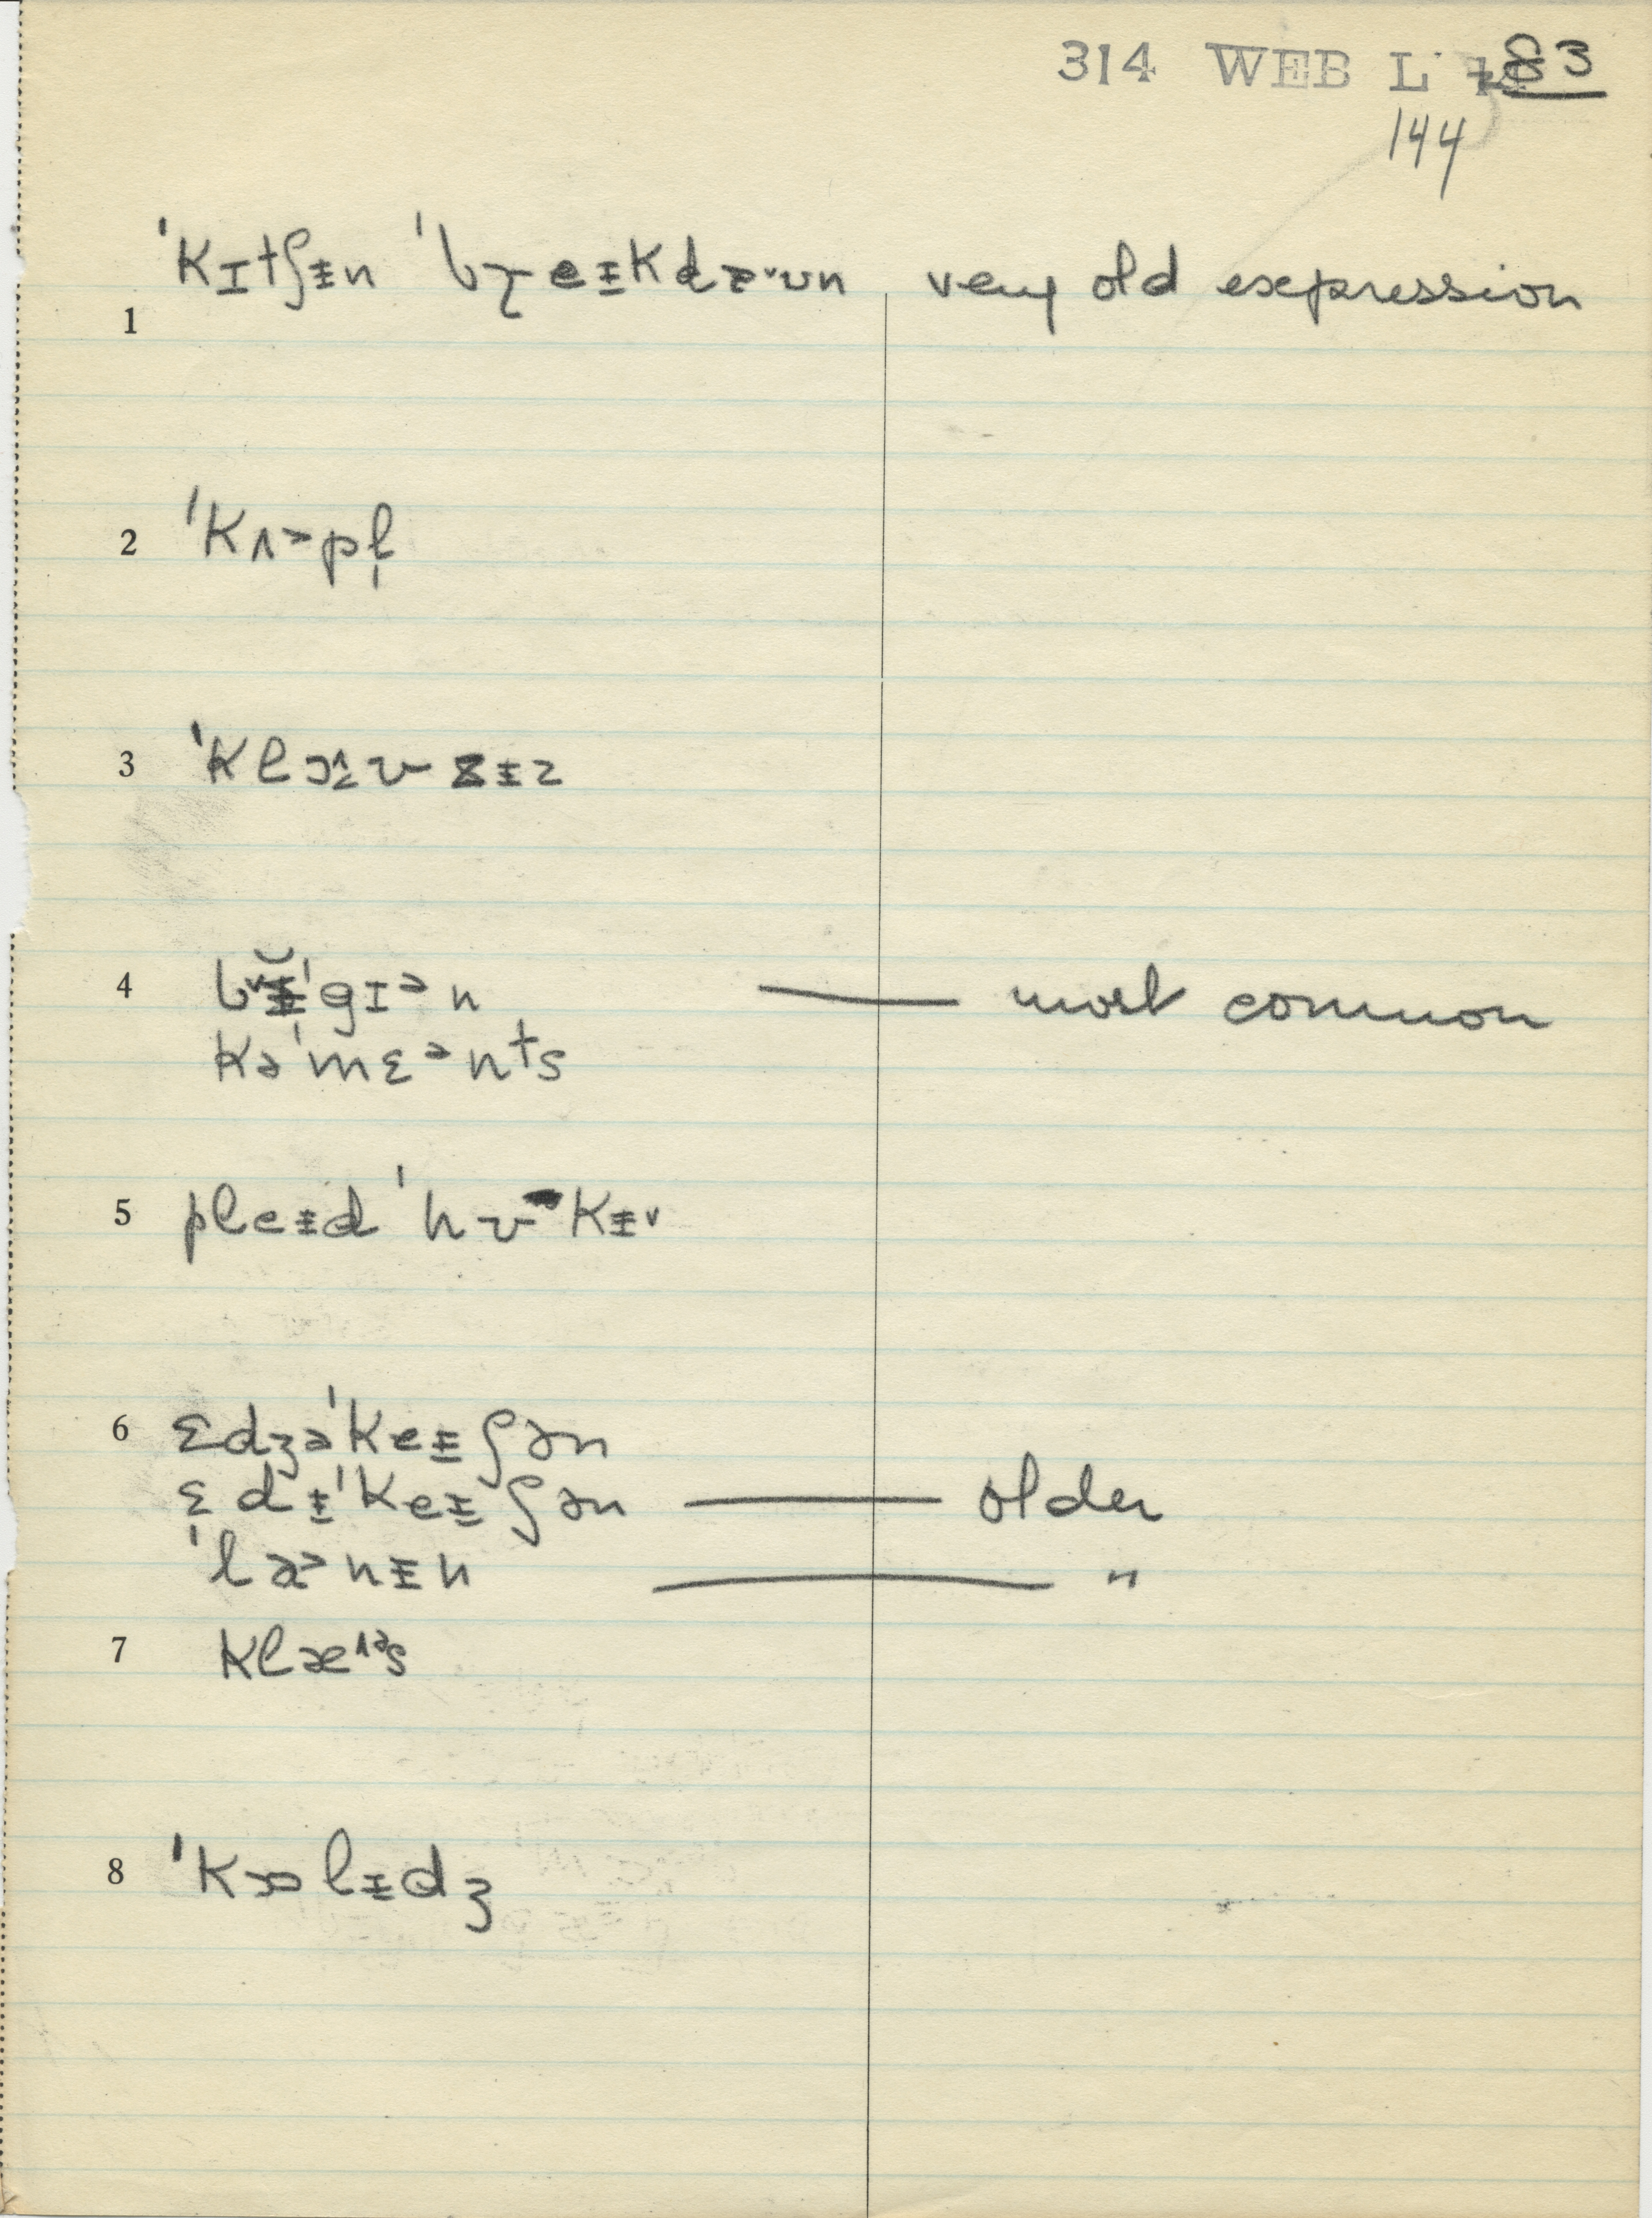 314 WEB L 83
144
1 ˈkɪtʃᵻn ˈbɽeᵻkdæ˅ʊn very old expression
2 ˈkʌᵊpl̩
3 ˈklɒ˔ʊzᵻz
4 gɪᵊn — most common
kəˈmɛᵊnts
5 pleᵻd kᵻ˅
6 ɛdʒəˈkeᵻʃən
ɛdᵻˈkeᵻʃən — older
ˈlɚᵊnᵻn — "
7 klæ˄ᵊs
8 ˈkɒlᵻdʒ